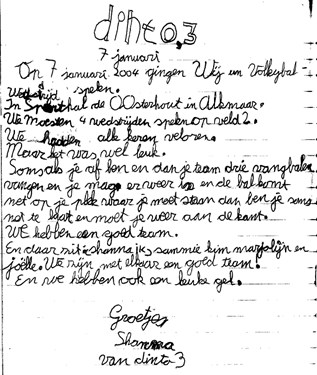 dinto,3
7 januari
Op 7 januari 2004 gingen Wij un Volleybal-
wedstrijd spelen.
In Sporthal de Oosterhout in Alkmaar.
We Moesten 4 wedstrijden spelen op veld 2.
We hadden alle keren veloren.
Maar het was wel leuk.
Soms als je af ben en dan je team drie vangbalen
vangen en je mag er weer in en de bal komt
net op je plek waar je moet staan dan ben je soms
net te laat en moet je weer aan de kant.
WE hebben een goed team.
En daar zit: shanna, ik, sammie kim marjolijn en
joëlle. We zijn met elkaar een goed team!
En we hebben ook een leuke gel.
Groetjes
Shanna
van dinto 3